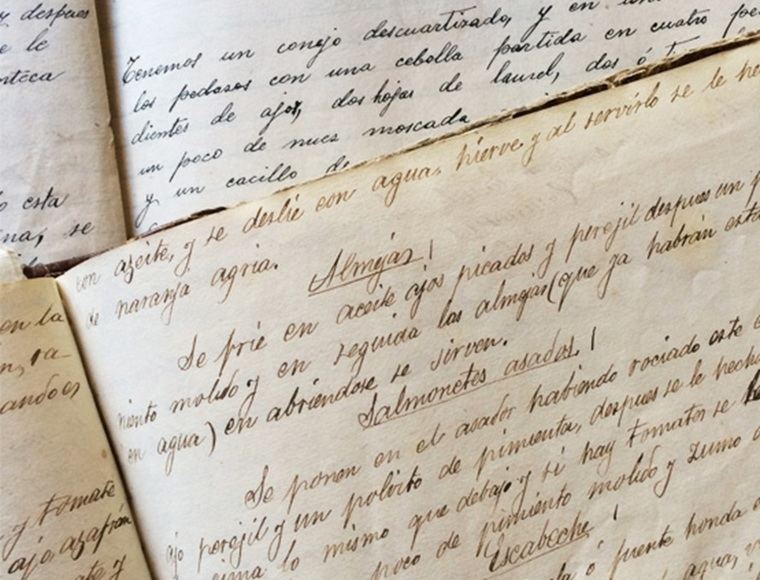 z despues
e le
nteca
esta
na, se
Tenemos un conejo descuartizado, y en
los pedazos con una cebolla partida en cuatro pe
dientes de ajos, dos hojas de laurel, dos ó
un poco de nuez moscada
y un cacillo de
en la
n, ra-
ando es
y tomate
ajo azafrán
ate y
con azeite, y se deslie con agua, hierve y al servirlo se le
de naranja agria.
Almejas
Se frie en aceite ajos picados y perejil despues un
miento molido y en seguida las almejas (que ya habrán esta
en agua) en abriendose se sirven.
Salmonetes asados
Se ponen en el asador habiendo rociado este
ajo perejil y un polvito de pimienta, despues se le hecha
cima lo mismo que debajo y si hay tomates se
poco de pimiento molido y zumo
Escabeche
ó fuente honda
agua, y